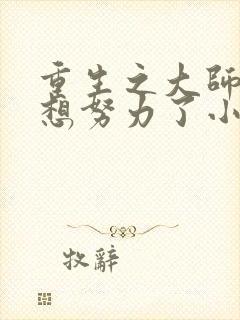 重生之大师
想努力了小
牧辭